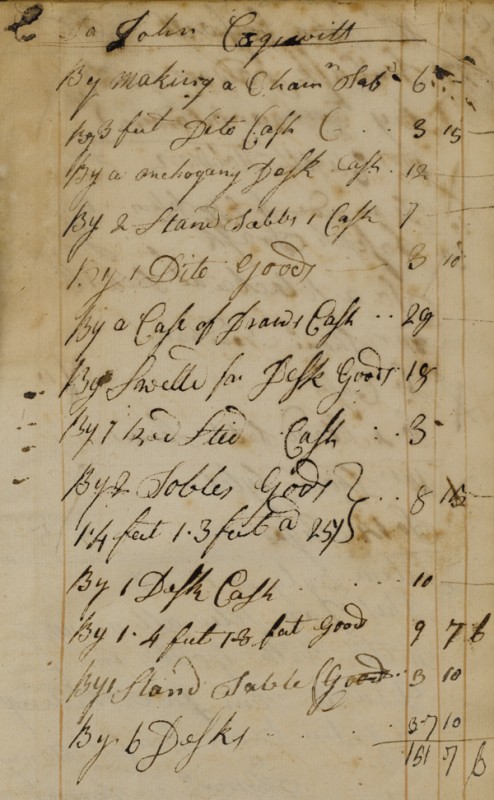 To John Cogswitt
By making a Cham^r Tab^l 6 -
By 3 feet Dito Cash 3 15
By a mehogany Desk Cash 12
By 2 Stand Tabbs 1 Cash 7
By 1 Dito Goods 3 10
By a Case of Draws Cash 29
By Swelld for Desk Goods 18
By 1 Bed Stid Cash 3
By 2 Tobles Goods } 8 15
1·4 feet 1·3 feet a 25/
By 1 Desk Cash 10
By 1·4 feet 1·3 feet Good 9 7 6
By 1 Stand Table Good 3 10
By 6 Desks 37 10
151 7 6